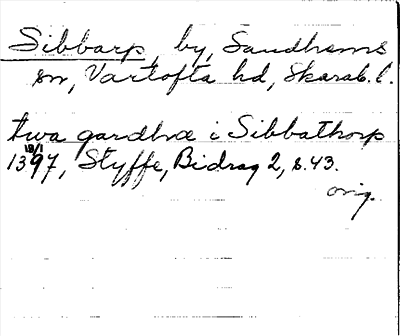 Sibbarp, by, Sandhems
sn, Vartofta hd, Skarab. l.
twa gardha i Sibbathorp
18/1
1397, Styffe, Bidrag 2, s. 43.
orig.